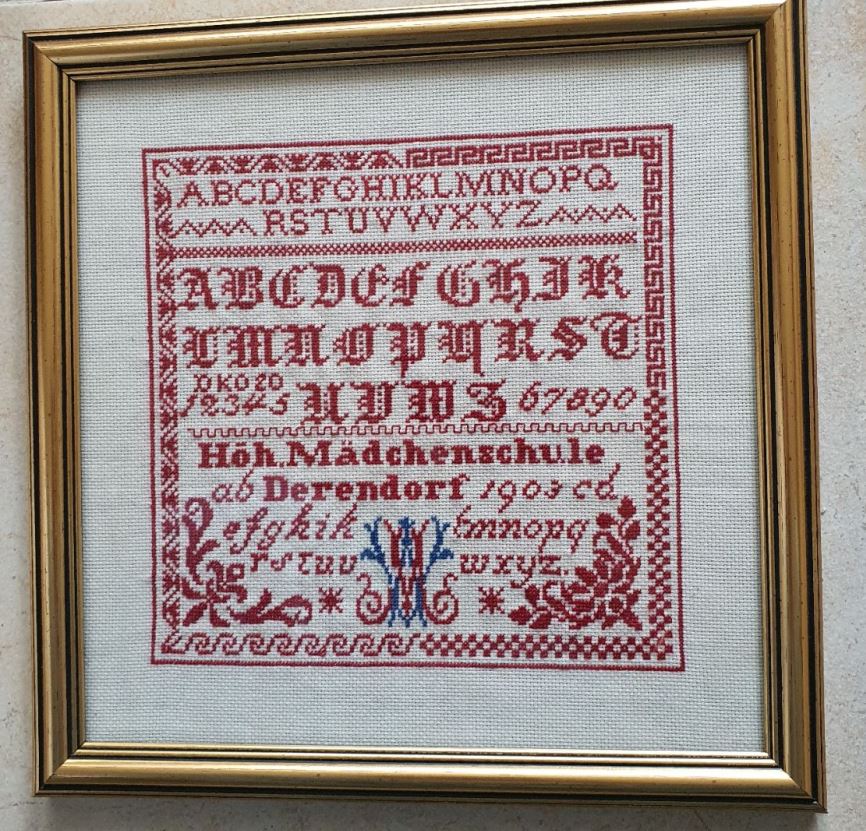 ABCDEFGHIKLMNOPQ
RSTUVWXYZ
ABCDEFGHIK
LMNOPQRST
DKO20
12345 UVWZ 67890
Höh. Mädchenschule
ab Derendorf 1903 cd
efghik lmnopq
rstuv wxyz.